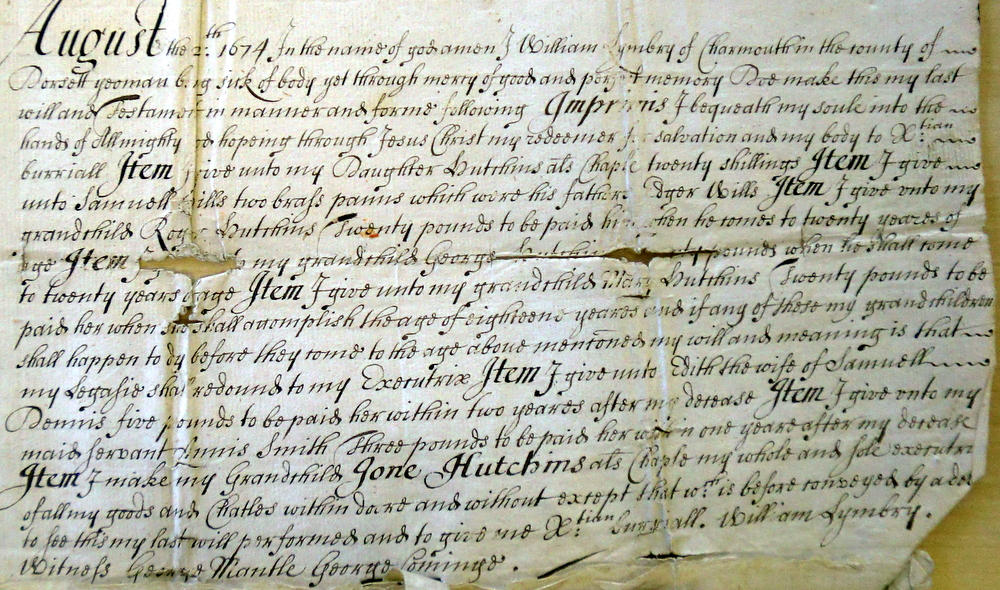 August the 2th 1674 In the name of god amen I William Lymbry of Charmouth in the county of
Dorsett yeoman being sick of body yet through mercy of good and perfect memory Doe make this my last
will and Testament in manner and forme following Imprimis I bequeath my soule into the
hands of Allmighty god hopeing through Jesus Christ my redeemer for salvation and my body to Xtian
burriall Item I give unto my Daughter Hutchins als Chaple twenty shillings Item I give
unto Samuell Wills two brass panns which were his father Wills Item I give vnto my
grandchild Roger Hutchins Twenty pounds to be paid him when he comes to twenty yeares of
age Item my grandchild George Hutchins pounds when he shall come
to twenty years of age Item I give unto my grandchild Mary Hutchins Twenty pounds to be
paid her when she shall acomplish the age of eighteene yeares and if any of these my grandchildren
shall happen to dy before they come to the age above mentoned my will and meaning is that
my Legasie shall redound to my Executrix Item I give unto Edith the wife of Samuell
Dennis five pounds to be paid her within two yeares after my decease Item I give vnto my
maid servant Annis Smith Three pounds to be paid her within one yeare after my decease
Item I make my Grandchild Jone Hutchins als Chaple my whole and sole executri
of all my goods and Chatles within dore and without except that wch is before conveyed by a
to see this my last will performed and to give me Xtian burriall. William Lymbry.
Witness George Mantle George